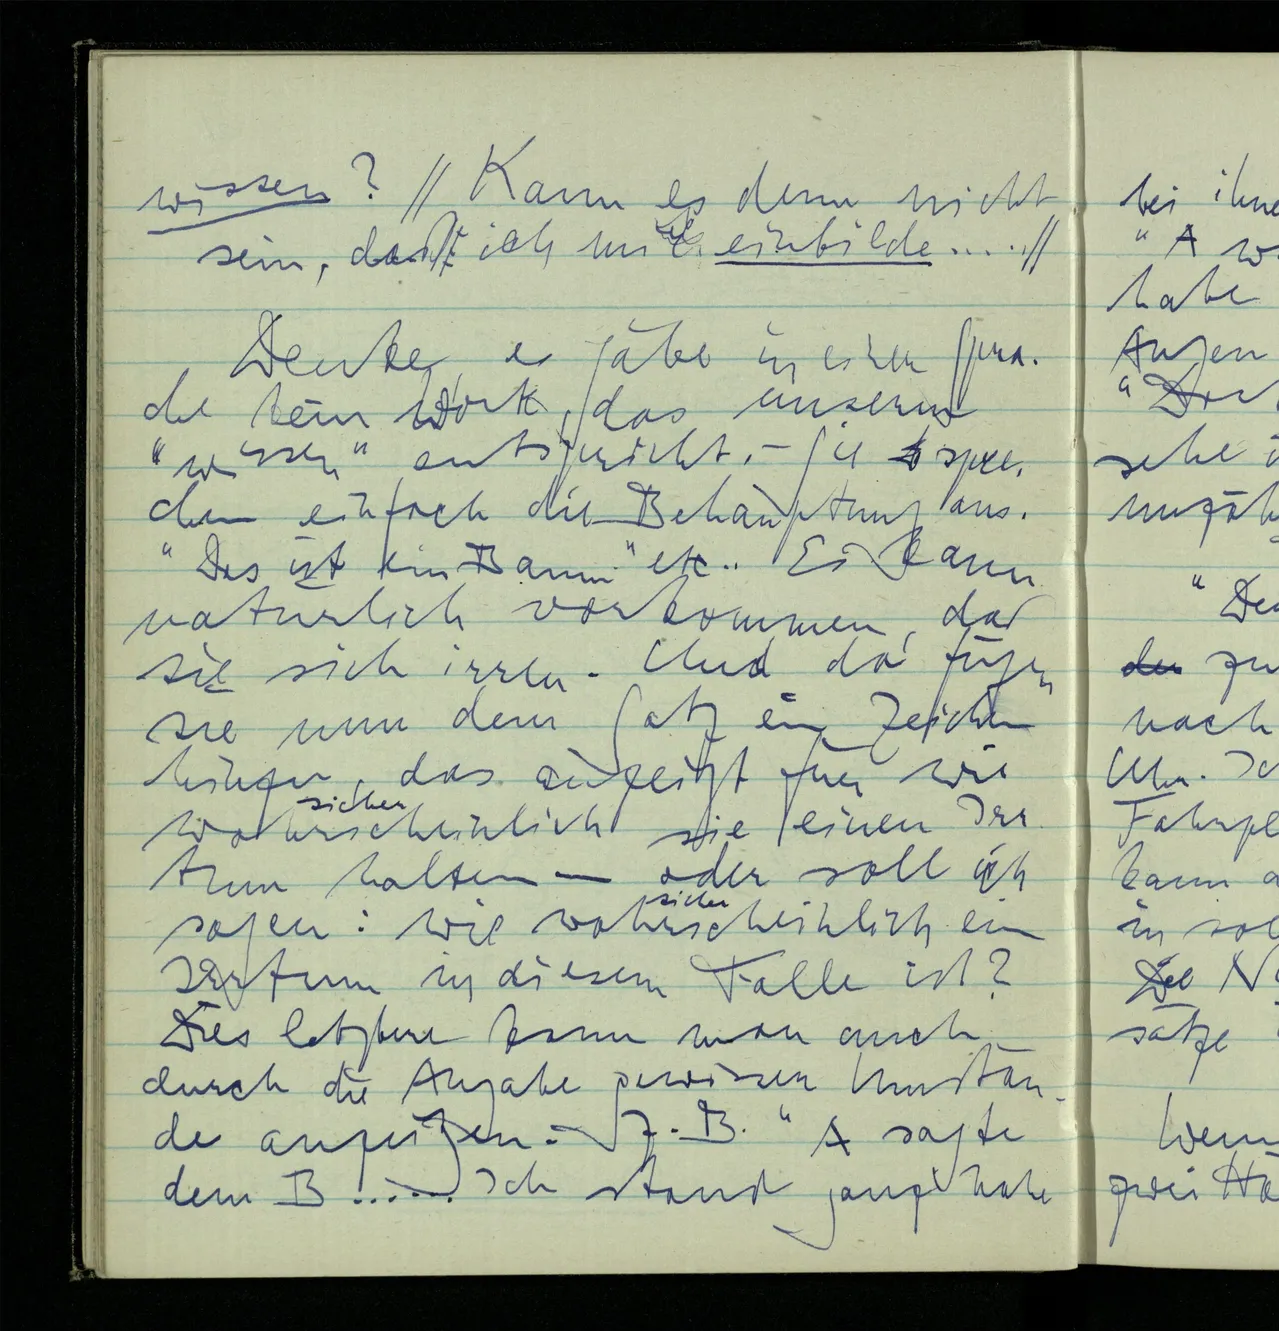 wissen? // Kann es denn nicht
sein, daß ich mir es einbilde .... //
Denke, es gäbe in einer Spra-
che kein Wort, das unserm
"wissen" entspricht. – Sie spre-
chen einfach die Behauptung aus.
"Das ist ein Baum" etc.. Es kann
natürlich vorkommen, daß
sie sich irren. Und da fügen
sie nun dem Satz ein Zeichen
hinzu, das anzeigt für wie
sicher
wahrscheinlich sie einen Irr
tum halten – oder soll ich
sagen: wie wahrscheinlich ein
Irrtum in diesem Falle ist?
Dies letztere kann man auch
durch die Angabe gewisser Umstän-
de anzeigen. – Z.B. "A sagte
dem B ..... Ich stand ganz nahe
bei ihne
"A w
habe
Augen
sehe i
zu
nach
Uhr. Ic
Fahrpl
kann a
in sol
Die N
sätze
Wenn
zwei Hä